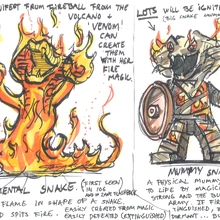 NIPEDT FROM FIREBALL FROM THE
VOLCANO +
VENOM
CAN
CREATE
THEM
WITH HER
FIRE
MAGIC.
MENTAL SNAKE. (FIRST SEEN
IN 108
FLAME IN SHAPE OF A SNAKE.
SPITS FIRE.
EASILY CREATED FROM MAGIC
EASILY DEFEATED (EXTINGUISHED)
LOTS WILL BE IGNIT
(BIG SNAKE
MUMMY SNA
A PHYSICAL MUMMY
TO LIFE BY MAGIC
STRONG AND THE
ARMY. IF
TINGUISHED,
DORMANT